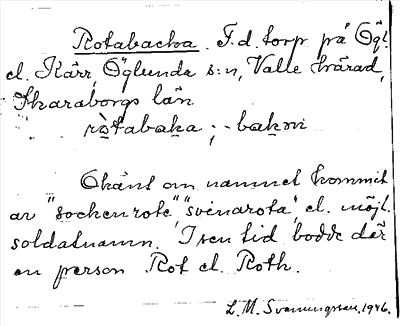 Rotabacka. F.d. torp på Ögl.
el. Kärr, Öglunda s:n, Valle härad,
Skaraborgs län
ròtabaka ; -bakɷn
Okänt om namnet kommit
av "sockenrote" "svinarota", el. möjl.
soldatnamn. I sen tid bodde där
en person Rot el. Roth.
L. M. Svenungsson, 1946.